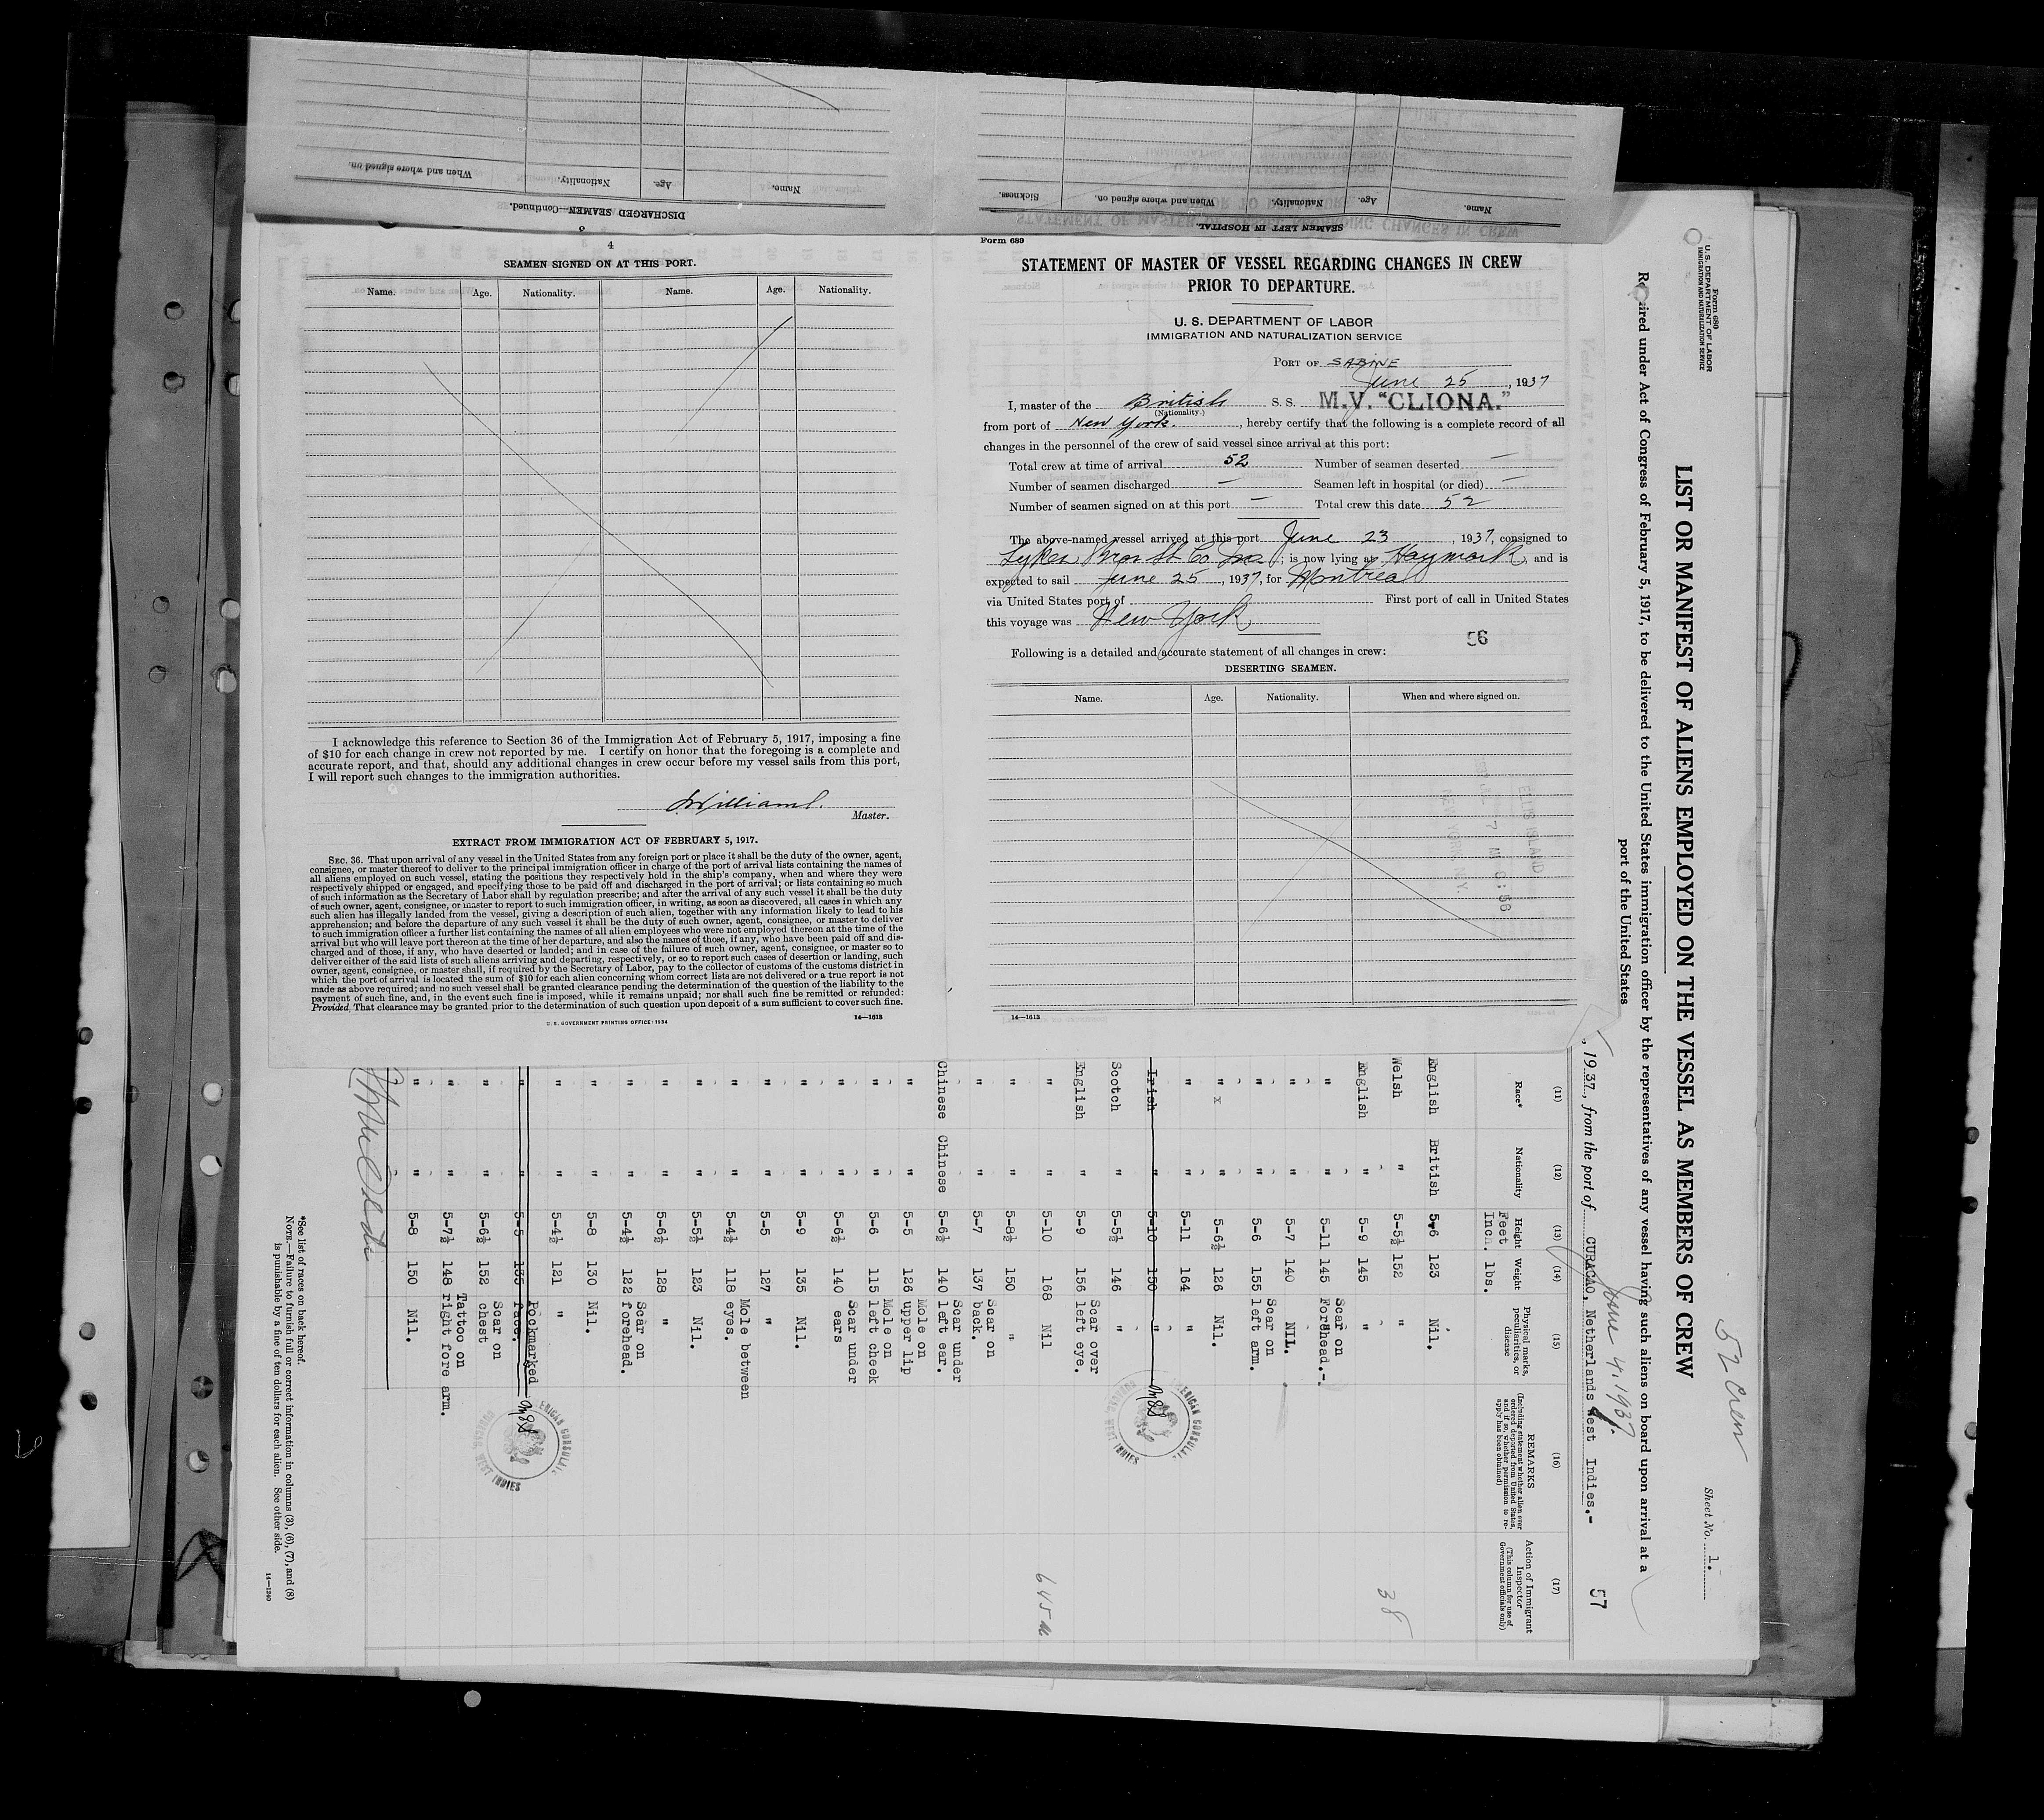 DISCHARGED SEAMEN—Continued.
Name.
Age.
Nationality.
When and where signed on.
SEAMEN LEFT IN HOSPITAL
Name.
Age.
When and where signed on.
Nationality.
Sickness.
4
SEAMEN SIGNED ON AT THIS PORT.
Name. Age. Nationality. Name. Age. Nationality.
I acknowledge this reference to Section 36 of the Immigration Act of February 5, 1917, imposing a fine
of $10 for each change in crew not reported by me. I certify on honor that the foregoing is a complete and
accurate report, and that, should any additional changes in crew occur before my vessel sails from this port,
I will report such changes to the immigration authorities.
Williams.
Master.
EXTRACT FROM IMMIGRATION ACT OF FEBRUARY 5, 1917.
SEC. 36. That upon arrival of any vessel in the United States from any foreign port or place it shall be the duty of the owner, agent,
consignee, or master thereof to deliver to the principal immigration officer in charge of the port of arrival lists containing the names of
all aliens employed on such vessel, stating the positions they respectively hold in the ship's company, when and where they were
respectively shipped or engaged, and specifying those to be paid off and discharged in the port of arrival; or lists containing so much
of such information as the Secretary of Labor shall by regulation prescribe; and after the arrival of any such vessel it shall be the duty
of such owner, agent, consignee, or master to report to such immigration officer, in writing, as soon as discovered, all cases in which any
such alien has illegally landed from the vessel, giving a description of such alien, together with any information likely to lead to his
apprehension; and before the departure of any such vessel it shall be the duty of such owner, agent, consignee, or master to deliver
to such immigration officer a further list containing the names of all alien employees who were not employed thereon at the time of the
arrival but who will leave port thereon at the time of her departure, and also the names of those, if any, who have been paid off and dis-
charged and of those, if any, who have deserted or landed; and in case of the failure of such owner, agent, consignee, or master so to
deliver either of the said lists of such aliens arriving and departing, respectively, or so to report such cases of desertion or landing, such
owner, agent, consignee, or master shall, if required by the Secretary of Labor, pay to the collector of customs of the customs district in
which the port of arrival is located the sum of $10 for each alien concerning whom correct lists are not delivered or a true report is not
made as above required; and no such vessel shall be granted clearance pending the determination of the question of the liability to the
payment of such fine, and, in the event such fine is imposed, while it remains unpaid; nor shall such fine be remitted or refunded:
Provided, That clearance may be granted prior to the determination of such question upon deposit of a sum sufficient to cover such fine.
U. S. GOVERNMENT PRINTING OFFICE: 1934
14—1613
Form 689
STATEMENT OF MASTER OF VESSEL REGARDING CHANGES IN CREW
PRIOR TO DEPARTURE.
U. S. DEPARTMENT OF LABOR
IMMIGRATION AND NATURALIZATION SERVICE
PORT OF SABINE
June 25, 1937
I, master of the British S. S. M.V. "CLIONA."
(Nationality.)
from port of New York., hereby certify that the following is a complete record of all
changes in the personnel of the crew of said vessel since arrival at this port:
Total crew at time of arrival 52 Number of seamen deserted —
Number of seamen discharged — Seamen left in hospital (or died) —
Number of seamen signed on at this port — Total crew this date 52
The above-named vessel arrived at this port June 23, 1937, consigned to
Lykes Bros SS Co Inc; is now lying at Haymark, and is
expected to sail June 25, 1937, for Montreal
via United States port of First port of call in United States
this voyage was New York
56
Following is a detailed and accurate statement of all changes in crew:
DESERTING SEAMEN.
Name. Age. Nationality. When and where signed on.
ELLIS ISLAND
NEW YORK, N.Y.
14—1613
Form 689
U. S. DEPARTMENT OF LABOR
IMMIGRATION AND NATURALIZATION SERVICE
52 Crew
Sheet No. 1.
LIST OR MANIFEST OF ALIENS EMPLOYED ON THE VESSEL AS MEMBERS OF CREW
Required under Act of Congress of February 5, 1917, to be delivered to the United States immigration officer by the representatives of any vessel having such aliens on board upon arrival at a
port of the United States
June 4, 1937.
, 1937, from the port of CURACAO, Netherlands West Indies.-
57
(11) (12) (13) (14) (15) (16) (17)
Race* Nationality Height Weight Physical marks, peculiarities, or disease REMARKS Action of Immigrant Inspector
Feet Inch. lbs.
(Including statement whether alien ever ordered deported from United States, and if so, whether permission to re-apply has been obtained)
(This column for use of Government officials only)
English British 5-6 123 Nil.
Welsh " 5-5½ 152 "
English " 5-9 145 " 38
" " 5-11 145 Scar on Forehead.-.
" " 5-7 140 NIL.
" " 5-6 155 Scar on left arm.
" x " 5-6½ 126 Nil.
" " 5-11 164 "
Irish " 5-10 150 "
AMERICAN CONSULATE
Scotch " 5-5½ 146 "
English " 5-9 156 Scar over left eye.
" " 5-10 168 Nil 645
" " 5-8½ 150 "
" " 5-7 137 Scar on back.
Chinese Chinese 5-6½ 140 Scar under left ear.
" " 5-5 126 Mole on upper lip
" " 5-6 115 Mole on left cheek
" " 5-6½ 140 Scar under ears
" " 5-9 135 Nil.
" " 5-5 127 "
" " 5-4½ 118 Mole between eyes.
" " 5-5½ 123 Nil.
" " 5-6½ 128 "
" " 5-4½ 122 Scar on forehead.
" " 5-8 130 Nil.
" " 5-4½ 121 "
" " 5-5 135 Pockmarked face.
AMERICAN CONSULATE
" " 5-6½ 152 Scar on chest
" " 5-7½ 148 Tattoo on right fore arm.
" " 5-8 150 Nil.
*See list of races on back hereof.
NOTE.—Failure to furnish full or correct information in columns (3), (6), (7), and (8)
is punishable by a fine of ten dollars for each alien. See other side.
14—1240